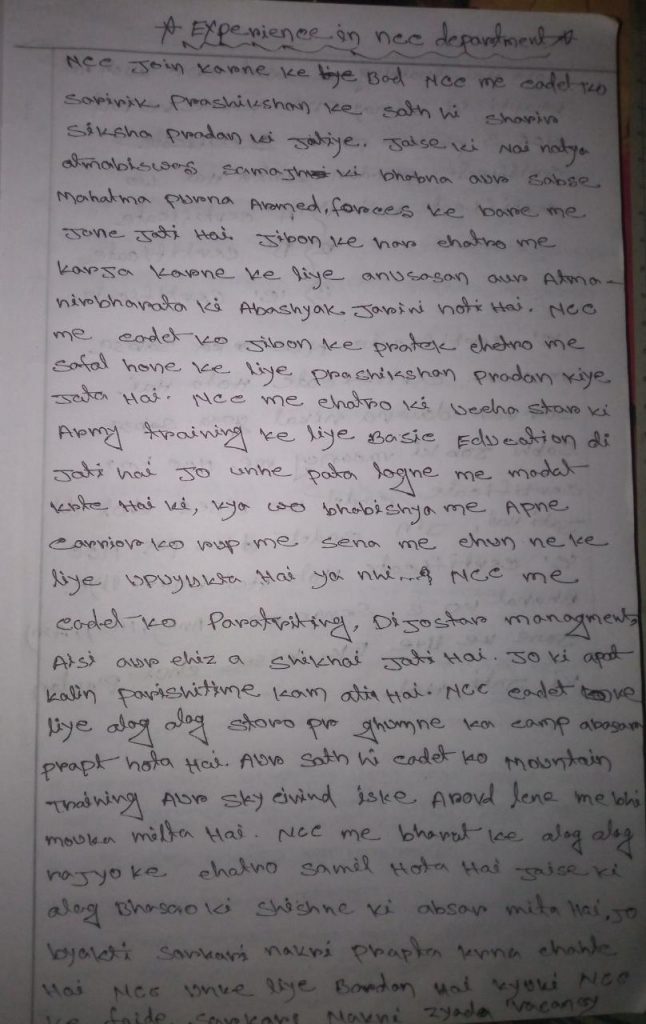 Experience in ncc department
NCC Join Karne ke liye Bad NCC me cadet ko
saririk Prashikshan ke sath hi sharir
siksha pradan ki Jatiye. Jaise ki Nai natya
atmabiswas samajh ki bhabna aur sabse
Mahatma purna Armed, forces ke bare me
Jane Jati Hai. Jibon ke har chatro me
karja karne ke liye anusasan aur Atma-
nirbharata ki Abashyak Jarini hoti Hai. NCC
me cadet ko Jibon ke pratek chetro me
safal hone ke liye prashikshan pradan kiye
Jata Hai. NCC me chatro ki star ki
Army training ke liye Basic Education di
Jati hai Jo unhe pata logne me madat
krte Hai ki, kya wo bhabishya me Apne
ko rup me sena me chun ne ke
liye upuyukta Hai ya nhi... NCC me
cadet ko Paratriting, Dijostar managments
Aisi aur chiz a shikhai Jati Hai. Jo ki apat
kalin parishitime kam atia Hai. NCC cadet ke
liye alag alag storo pr ghumne ka camp abasar
prapt hota Hai. Aur sath hi cadet ko Mountain
Training Aur sky eivind iske Arovd lene me bhi
mouka milta Hai. NCC me bharat ke alag alag
rajyo ke chatro samil Hota Hai Jaise ki
alag Bhasao ki shishne ki absar mita Hai, Jo
byakti sarkari nakri prapta krna chahte
Hai NCC unke liye Bardan Hai kyoki NCC
ke faide sarakari Nakri zyada vacancy